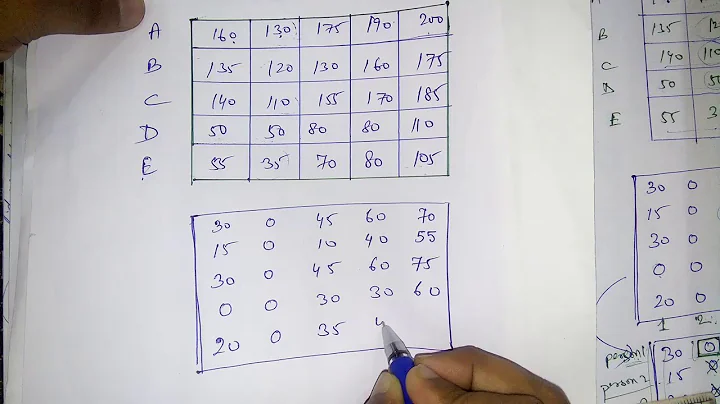 A 160 130 175 190 200
B 135 120 130 160 175
C 140 110 155 170 185
D 50 50 80 80 110
E 55 35 70 80 105
30 0 45 60 70
15 0 10 40 55
30 0 45 60 75
0 0 30 30 60
20 0 35 4
B 135
C 140 110
D 50
E 55 3
30 0
15 0
30 0
0 0
20 0
1 2
person1 30 0
person2 15